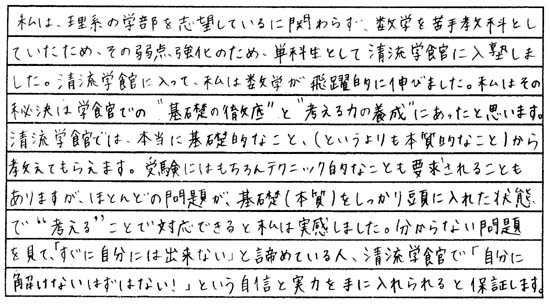 私は、理系の学部を志望しているに関わらず、数学を苦手教科とし
ていたため、その弱点強化のため、単科生として清流学館に入塾しま
した。清流学館に入って、私は数学が飛躍的に伸びました。私はその
秘決は学館での"基礎の徹底"と"考える力の養成"にあったと思います。
清流学館では、本当に基礎的なこと、(というよりも本質的なこと)から
教えてもらえます。受験にはもちろんテクニック的なことも要求されることも
ありますが、ほとんどの問題が、基礎(本質)をしっかり頭に入れた状態
で"考える"ことで対応できると私は実感しました。分からない問題
を見て、「すぐに自分には出来ない」と諦めている人、清流学館で「自分に
解けないはずはない!」という自信と実力を手に入れられると保証します。